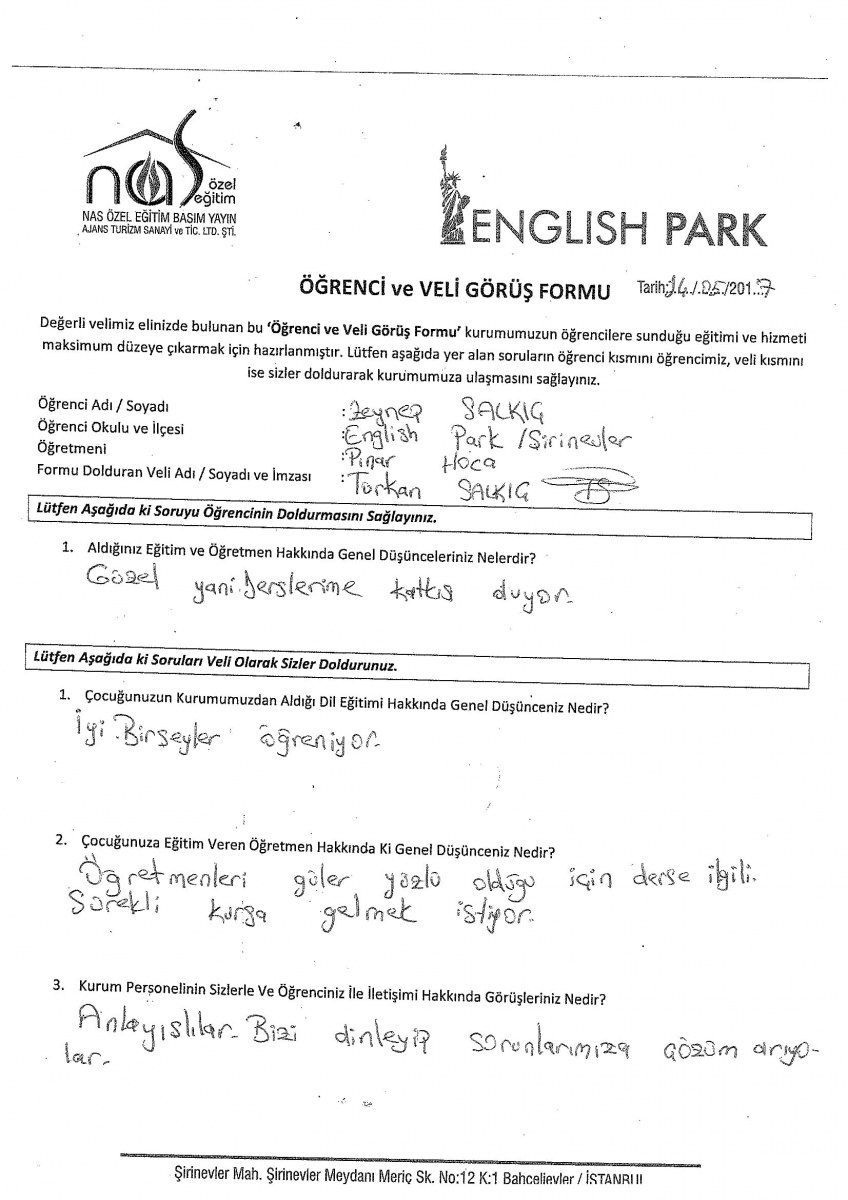 nas özel
eğitim
NAS ÖZEL EĞİTİM BASIM YAYIN
AJANS TURİZM SANAYİ ve TİC. LTD. ŞTİ.
ENGLISH PARK
ÖĞRENCİ ve VELİ GÖRÜŞ FORMU Tarih:14./.05/201.7
Değerli velimiz elinizde bulunan bu 'Öğrenci ve Veli Görüş Formu' kurumumuzun öğrencilere sunduğu eğitimi ve hizmeti
maksimum düzeye çıkarmak için hazırlanmıştır. Lütfen aşağıda yer alan soruların öğrenci kısmını öğrencimiz, veli kısmını
ise sizler doldurarak kurumumuza ulaşmasını sağlayınız.
Öğrenci Adı / Soyadı :Zeynep SALKIG
Öğrenci Okulu ve İlçesi :English Park /Sirinevler
Öğretmeni :Pınar Hoca
Formu Dolduran Veli Adı / Soyadı ve İmzası :Torkan SALKIG TS
Lütfen Aşağıda ki Soruyu Öğrencinin Doldurmasını Sağlayınız.
1. Aldığınız Eğitim ve Öğretmen Hakkında Genel Düşünceleriniz Nelerdir?
Gözel yani. Derslerime katkıs duyor.
Lütfen Aşağıda ki Soruları Veli Olarak Sizler Doldurunuz.
1. Çocuğunuzun Kurumumuzdan Aldığı Dil Eğitimi Hakkında Genel Düşünceniz Nedir?
İyi. Birseyler öğreniyor.
2. Çocuğunuza Eğitim Veren Öğretmen Hakkında Ki Genel Düşünceniz Nedir?
Öğretmenleri göler yözlö oldoğo için derse ilgili.
Sörekli kursa gelmek istiyor.
3. Kurum Personelinin Sizlerle Ve Öğrenciniz İle İletişimi Hakkında Görüşleriniz Nedir?
Anlayıslılar. Bizi dinleyip sorunlarımıza çözöm arıyo-
lar.
Şirinevler Mah. Şirinevler Meydanı Meriç Sk. No:12 K:1 Bahçelievler / İSTANBUL